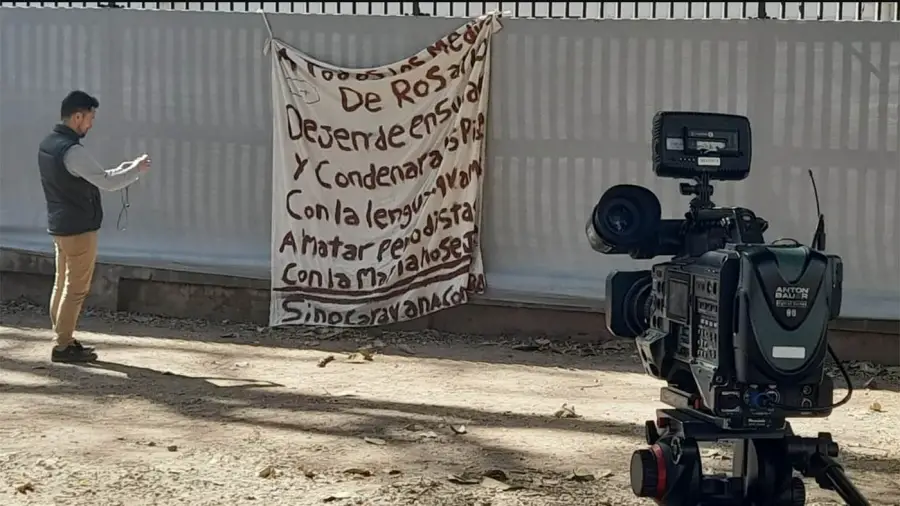 A Todos Los Medi
De Rosario
Dejen de ensuciar
Y Condenar a Los Pibe
Con la lengua
A matar periodistas
Con la Mafia no se j
Sino caravana con
ANTON
BAUER